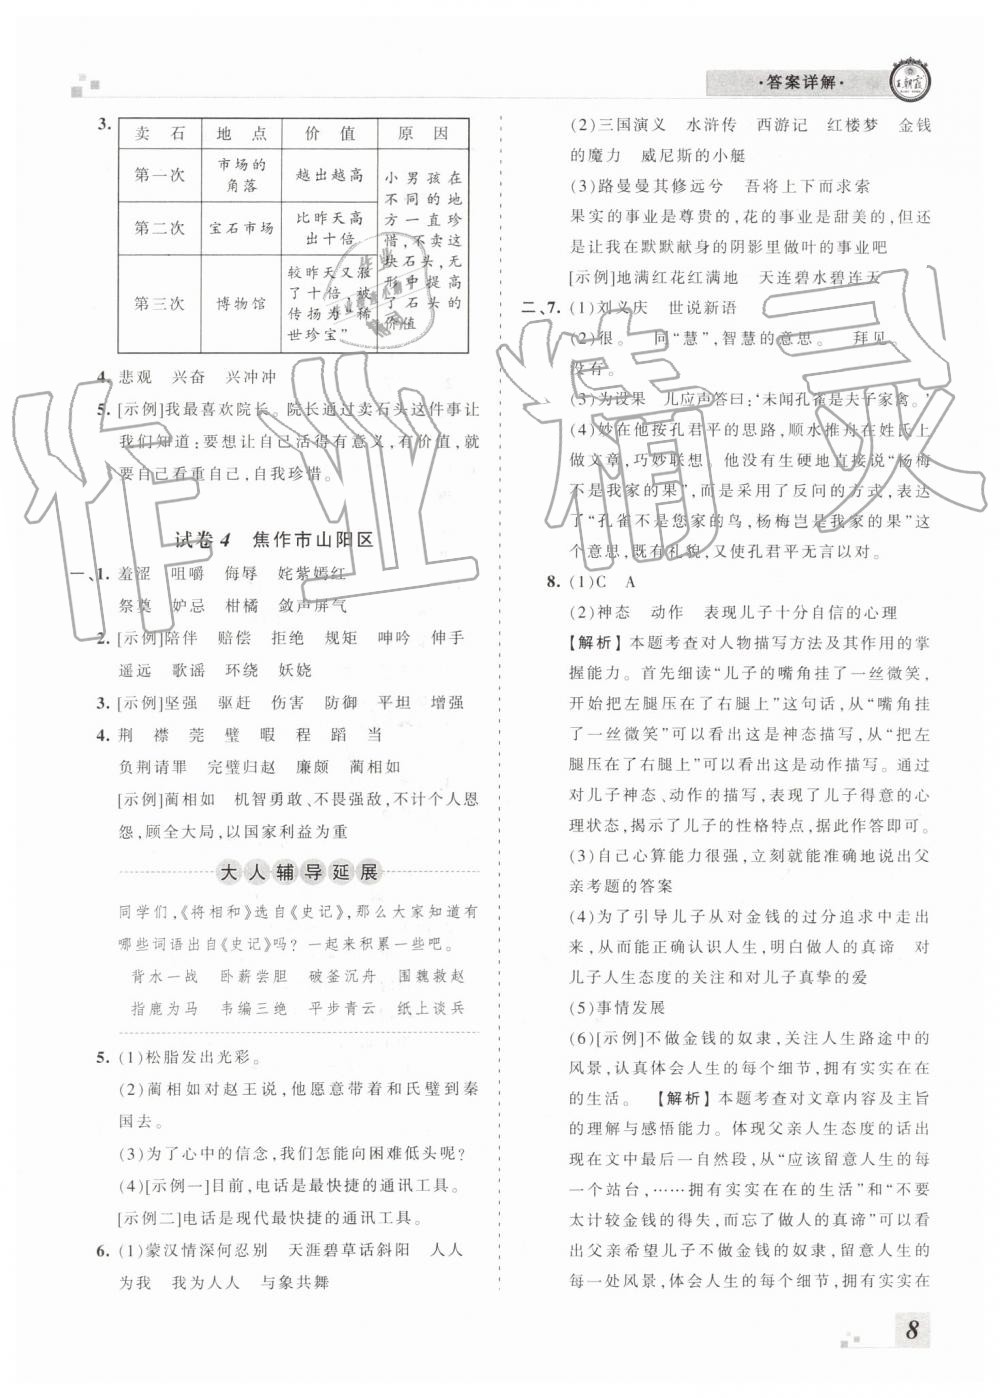 ·答案详解·
王朝霞
3.
卖石 地点 价值 原因
第一次 市场的角落 越出越高
第二次 宝石市场 比昨天高出十倍
第三次 博物馆 较昨天又涨了十倍,被传扬为“稀世珍宝”
小男孩在不同的地方一直珍惜,不卖这块石头,无形中提高了石头的价值
4. 悲观 兴奋 兴冲冲
5. [示例]我最喜欢院长。院长通过卖石头这件事让
我们知道:要想让自己活得有意义,有价值,就
要自己看重自己,自我珍惜。
试卷4 焦作市山阳区
一、1. 羞涩 咀嚼 侮辱 姹紫嫣红
祭奠 妒忌 柑橘 敛声屏气
2. [示例]陪伴 赔偿 拒绝 规矩 呻吟 伸手
遥远 歌谣 环绕 妖娆
3. [示例]坚强 驱赶 伤害 防御 平坦 增强
4. 荆 襟 莞 璧 暇 程 蹈 当
负荆请罪 完璧归赵 廉颇 蔺相如
[示例]蔺相如 机智勇敢、不畏强敌,不计个人恩
怨,顾全大局,以国家利益为重
大人辅导延展
同学们,《将相和》选自《史记》,那么大家知道有
哪些词语出自《史记》吗? 一起来积累一些吧。
背水一战 卧薪尝胆 破釜沉舟 围魏救赵
指鹿为马 韦编三绝 平步青云 纸上谈兵
5. (1)松脂发出光彩。
(2)蔺相如对赵王说,他愿意带着和氏璧到秦
国去。
(3)为了心中的信念,我们怎能向困难低头呢?
(4)[示例一]目前,电话是最快捷的通讯工具。
[示例二]电话是现代最快捷的通讯工具。
6. (1)蒙汉情深何忍别 天涯碧草话斜阳 人人
为我 我为人人 与象共舞
(2)三国演义 水浒传 西游记 红楼梦 金钱
的魔力 威尼斯的小艇
(3)路曼曼其修远兮 吾将上下而求索
果实的事业是尊贵的,花的事业是甜美的,但还
是让我在默默献身的阴影里做叶的事业吧
[示例]地满红花红满地 天连碧水碧连天
二、7. (1)刘义庆 世说新语
(2)很。 同“慧”,智慧的意思。 拜见。
没有。
(3)为设果 儿应声答曰:‘未闻孔雀是夫子家禽。’
(4)妙在他按孔君平的思路,顺水推舟在姓氏上
做文章,巧妙联想。他没有生硬地直接说“杨梅
不是我家的果”,而是采用了反问的方式,表达
了“孔雀不是您家的鸟,杨梅岂是我家的果”这
个意思,既有礼貌,又使孔君平无言以对。
8. (1)C A
(2)神态 动作 表现儿子十分自信的心理
【解析】本题考查对人物描写方法及其作用的掌
握能力。首先细读“儿子的嘴角挂了一丝微笑,
开始把左腿压在了右腿上”这句话,从“嘴角挂
了一丝微笑”可以看出这是神态描写,从“把左
腿压在了右腿上”可以看出这是动作描写。通过
对儿子神态、动作的描写,表现了儿子得意的心
理状态,揭示了儿子的性格特点,据此作答即可。
(3)自己心算能力很强,立刻就能准确地说出父
亲考题的答案
(4)为了引导儿子从对金钱的过分追求中走出
来,从而能正确认识人生,明白做人的真谛 对
儿子人生态度的关注和对儿子真挚的爱
(5)事情发展
(6)[示例]不做金钱的奴隶,关注人生路途中的
风景,认真体会人生的每个细节,拥有实实在在
的生活。 【解析】本题考查对文章内容及主旨
的理解与感悟能力。体现父亲人生态度的话出
现在文中最后一自然段,从“应该留意人生的每
一个站台,……拥有实实在在的生活”和“不要
太计较金钱的得失,而忘了做人的真谛”可以看
出父亲希望儿子不做金钱的奴隶,留意人生的
每一处风景,体会人生的每一个细节,拥有实实在
8
作业精灵